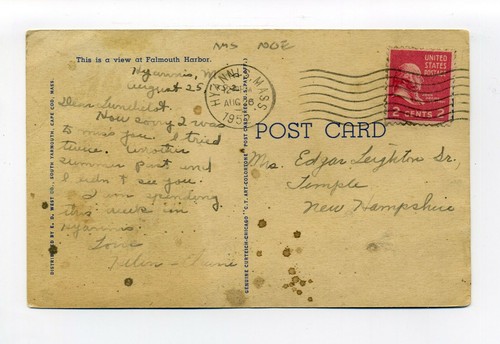 This is a view at Falmouth Harbor.
Hyannis, M
August 25
How sorry I was
to miss you. I tried
twice. Another
summer past and
I didn't see you.
I am spending
this week in
Hyannis.
Love
HYANNIS MASS
AUG
195
UNITED
STATES
POSTAGE
2 CENTS 2
POST CARD
Mrs. Edgar Leighton Sr,
Temple
New Hampshire
DISTRIBUTED BY E. D. WEST CO., SOUTH YARMOUTH, CAPE COD, MASS.
GENUINE CURTEICH-CHICAGO "C.T. ART-COLORTONE" POST CARD